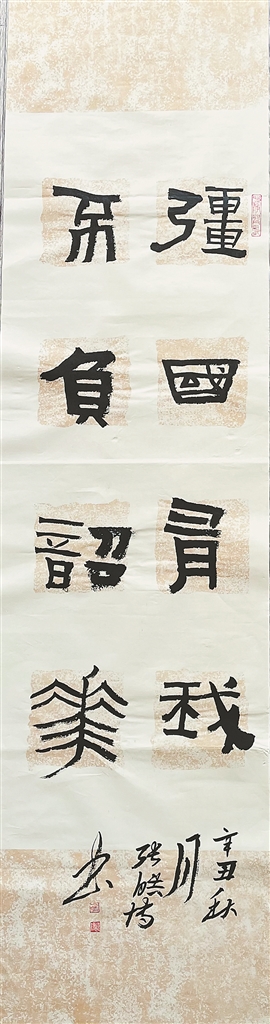 彊國有我
不負韶華
辛丑秋
月
書